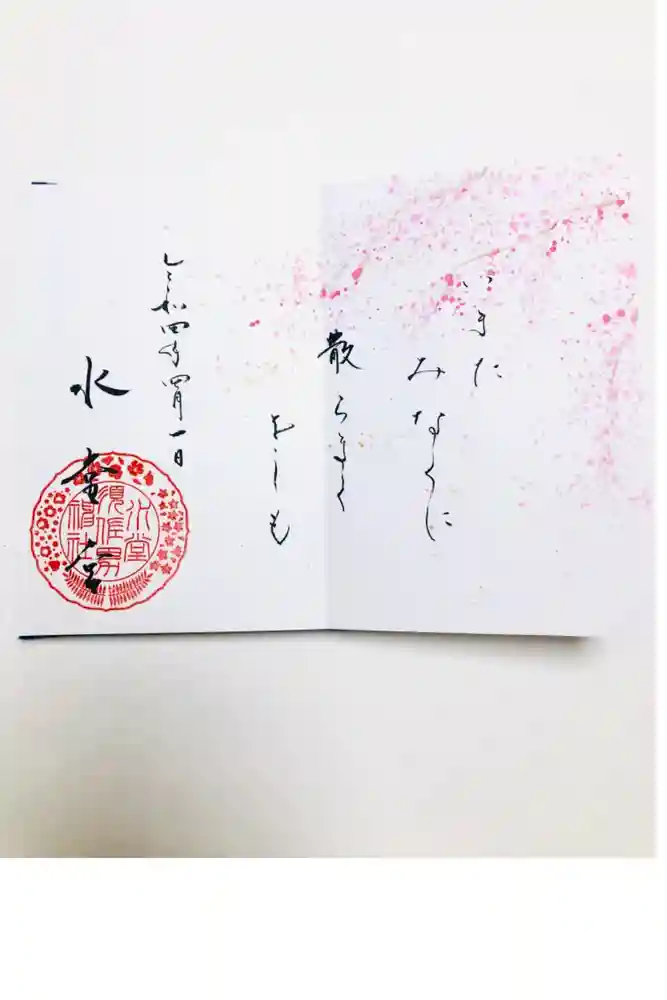 いまた
みなくに
散らまく
をしも
令和四年四月一日
水堂宮
水堂
須佐男
神社